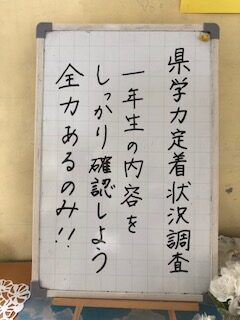 県学力定着状況調査
一年生の内容を
しっかり確認しよう
全力あるのみ!!